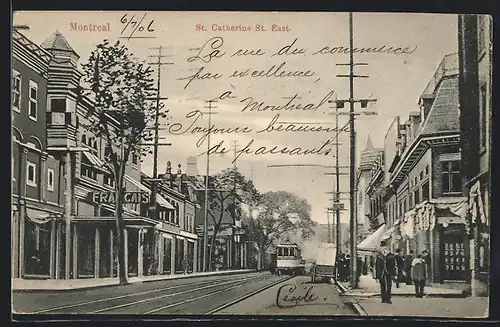 Montreal
6/7/06
St. Catherine St. East.
La rue du commerce
par excellence,
à Montréal
Toujours beaucoup
de passants.
FRANÇAIS
Cécile.